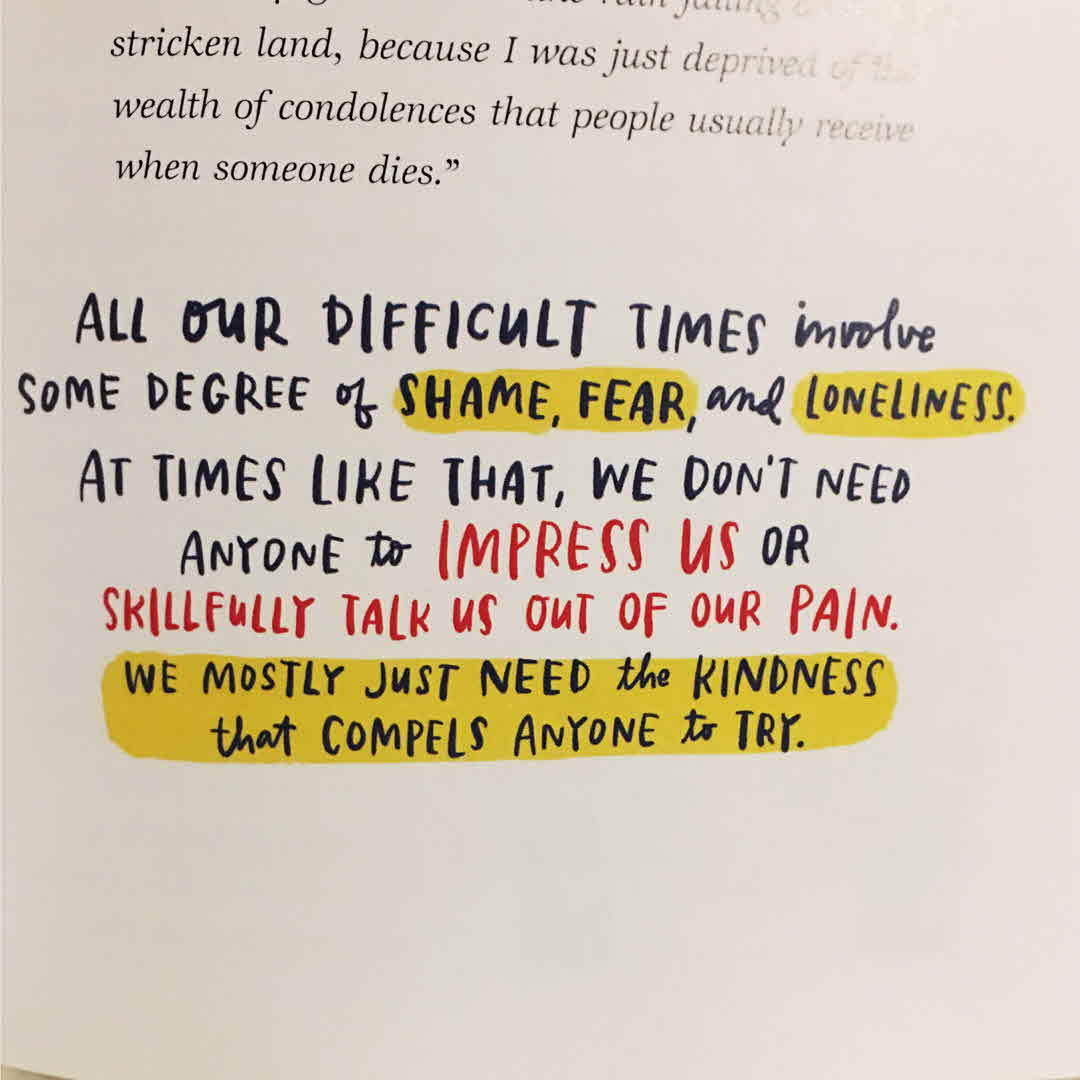 stricken land, because I was just deprived of the
wealth of condolences that people usually receive
when someone dies.”
ALL OUR DIFFICULT TIMES involve
SOME DEGREE of SHAME, FEAR, and LONELINESS.
AT TIMES LIKE THAT, WE DON'T NEED
ANYONE to IMPRESS US OR
SKILLFULLY TALK US OUT OF OUR PAIN.
WE MOSTLY JUST NEED the KINDNESS
that COMPELS ANYONE to TRY.